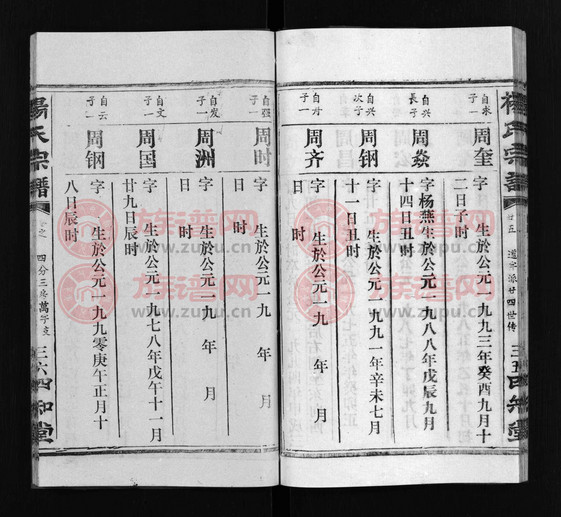 楊氏宗譜
廿五
道 派廿四世传
三五
四知堂
自来
子一
周奎
字 生於公元一九九三年癸酉九月十
二日子时
自兴
長子
周焱
字杨燕生於公元一九八八年戊辰九月
十四日丑时
自兴
次子
周钢
字 生於公元一九九一年辛未七月
十一日丑时
自升
子一
周齐
字 生於公元一九 年 月
日 时
自强
子一
周时
字 生於公元一九 年 月
日 时
自发
子一
周洲
字 生於公元一九 年 月
日 时
自文
子一
周国
字 生於公元一九七八年戊午十一月
廿九日辰时
自云
子一
周钢
字 生於公元一九九零庚午正月十
八日辰时
楊氏宗譜
四分三房萬子支
三六
四知堂
族谱网
族谱网
族谱网
族谱网